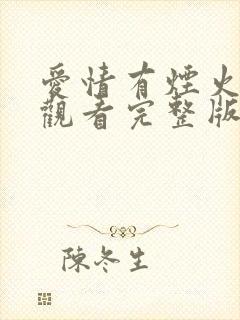 愛情有煙火
觀看完整版
陳冬生